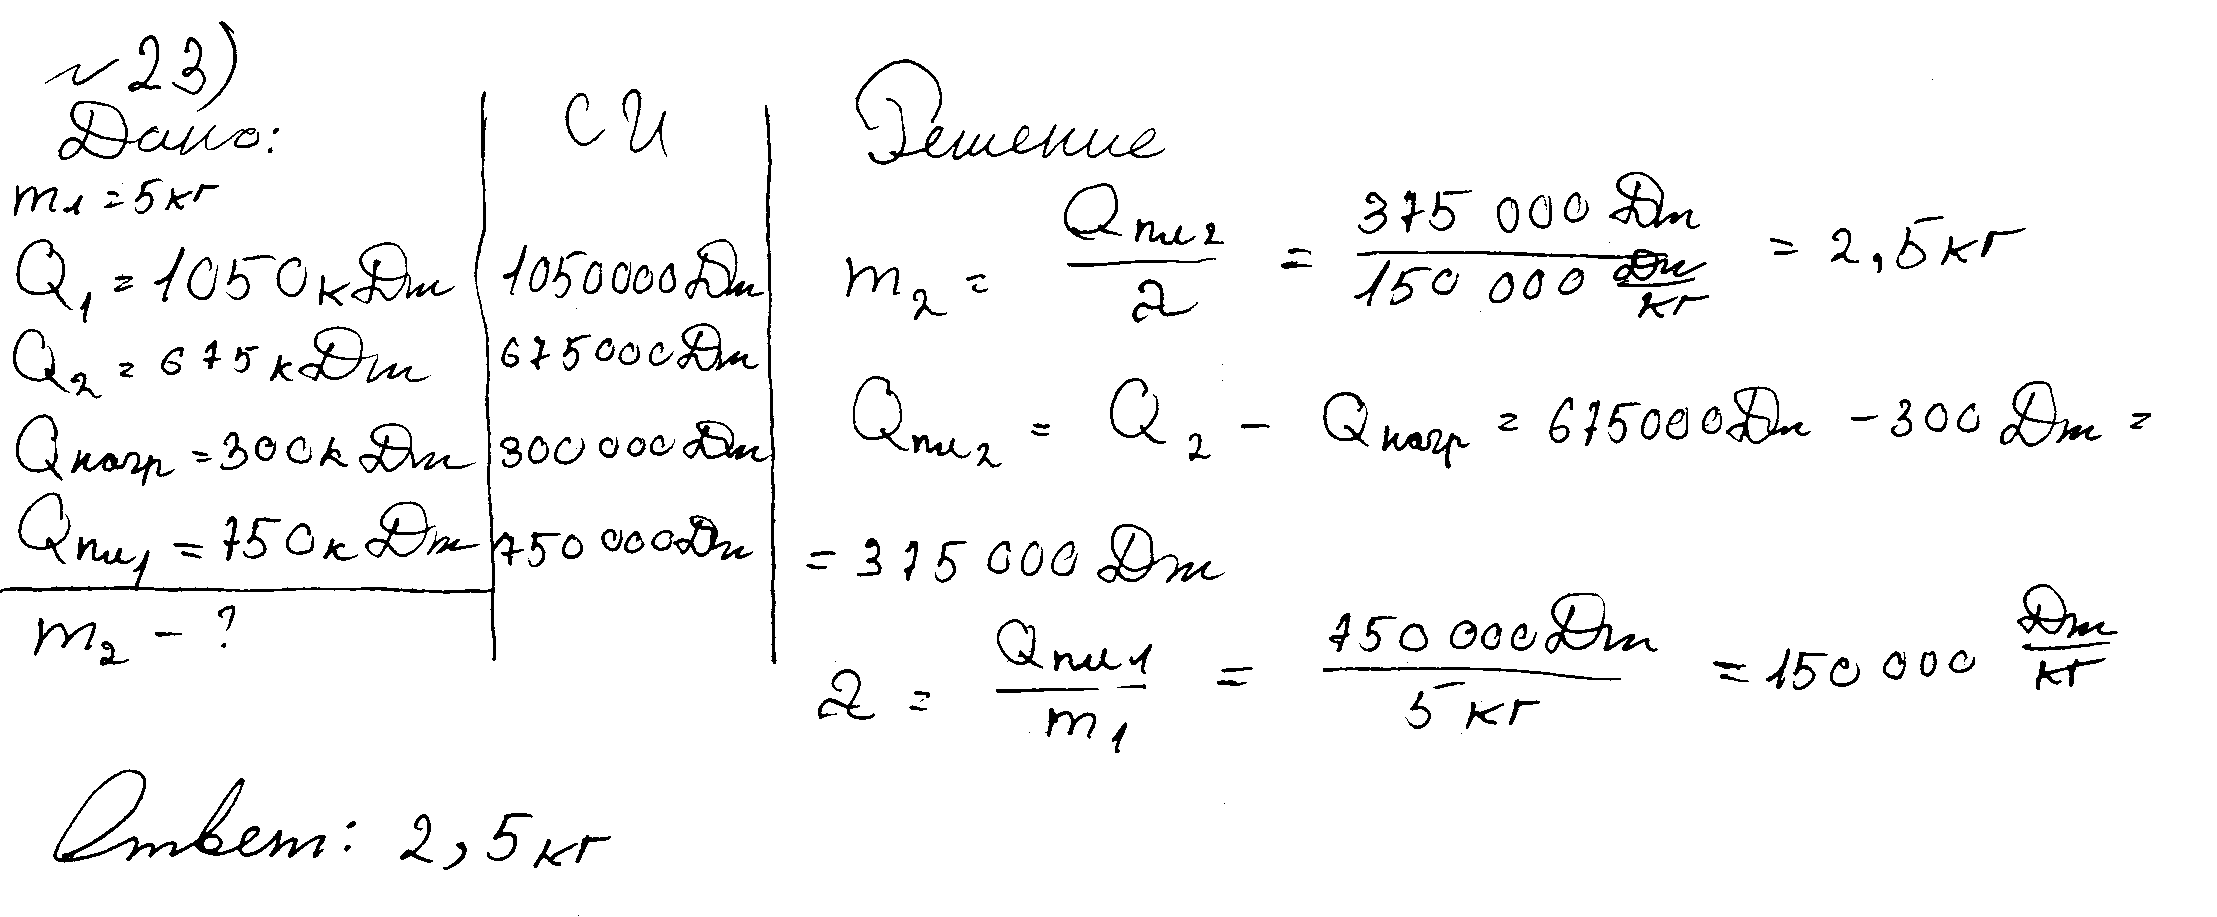 №23)
Дано:
m₁ = 5 кг
Q₁ = 1050 кДж
Q₂ = 675 кДж
Qнагр = 300 кДж
Qпл₁ = 750 кДж
m₂ - ?
СИ
1050000 Дж
675000 Дж
300 000 Дж
750 000 Дж
Решение
m₂ = Qпл₂ / λ = 375 000 Дж / 150 000 Дж/кг = 2,5 кг
Qпл₂ = Q₂ - Qнагр = 675000 Дж - 300 Дж =
= 375 000 Дж
λ = Qпл₁ / m₁ = 750 000 Дж / 5 кг = 150 000 Дж/кг
Ответ: 2,5 кг